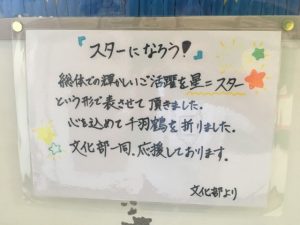 「スターになろう!」
総体での輝かしいご活躍を星=スター
という形で表させて頂きました。
心を込めて千羽鶴を折りました。
文化部一同、応援しております。
文化部より